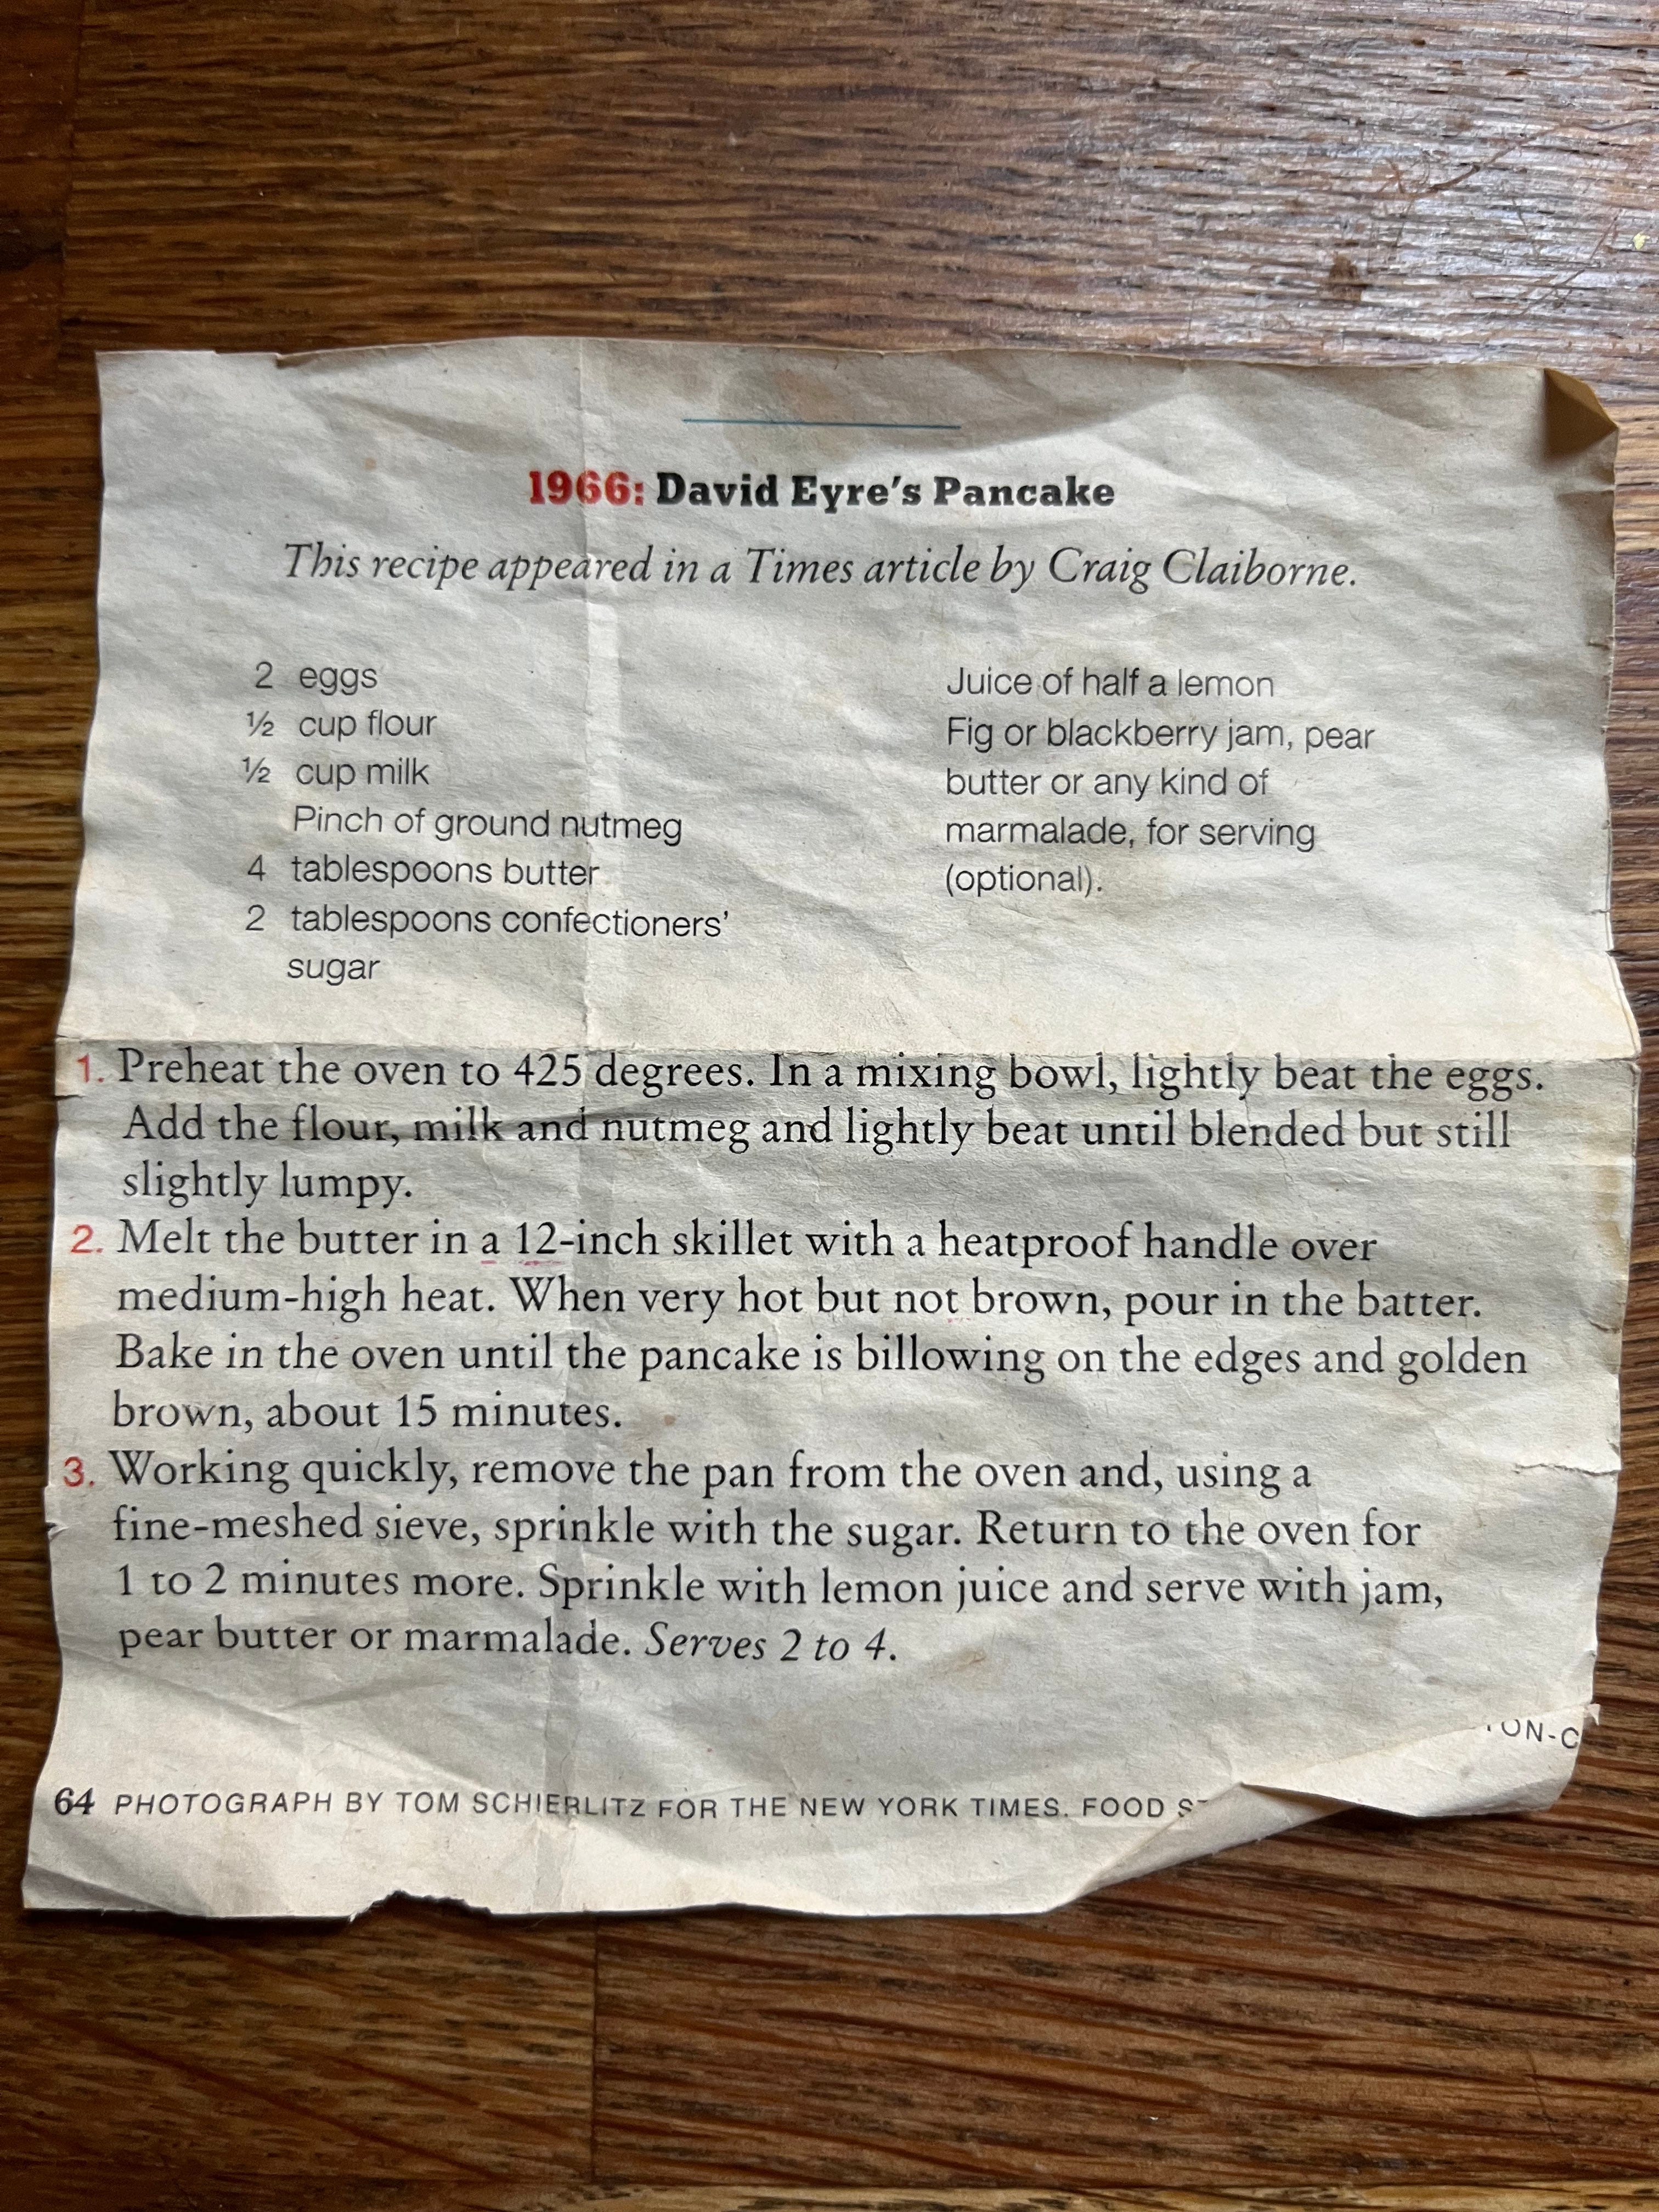 1966: David Eyre's Pancake
This recipe appeared in a Times article by Craig Claiborne.
2 eggs
½ cup flour
½ cup milk
Pinch of ground nutmeg
4 tablespoons butter
2 tablespoons confectioners'
sugar
Juice of half a lemon
Fig or blackberry jam, pear
butter or any kind of
marmalade, for serving
(optional).
1. Preheat the oven to 425 degrees. In a mixing bowl, lightly beat the eggs.
Add the flour, milk and nutmeg and lightly beat until blended but still
slightly lumpy.
2. Melt the butter in a 12-inch skillet with a heatproof handle over
medium-high heat. When very hot but not brown, pour in the batter.
Bake in the oven until the pancake is billowing on the edges and golden
brown, about 15 minutes.
3. Working quickly, remove the pan from the oven and, using a
fine-meshed sieve, sprinkle with the sugar. Return to the oven for
1 to 2 minutes more. Sprinkle with lemon juice and serve with jam,
pear butter or marmalade. Serves 2 to 4.
64 PHOTOGRAPH BY TOM SCHIERLITZ FOR THE NEW YORK TIMES. FOOD